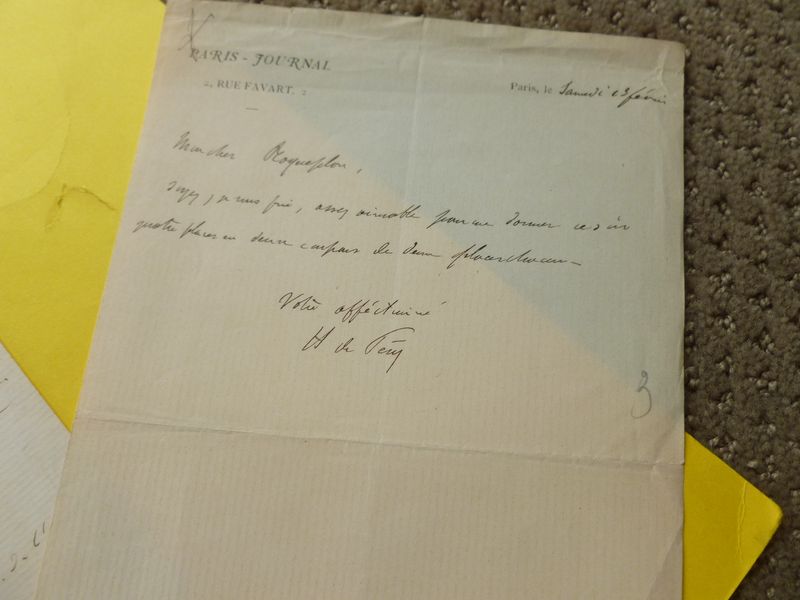 PARIS-JOURNAL
2, RUE FAVART, 2
Paris, le Samedi 13 févrie
Mon cher Roqueplan,
Soyez, je vous prie, assez aimable pour me donner ce soir
quatre places ou deux coupons de deux places chacun
Votre affectionné
H de Pène
3